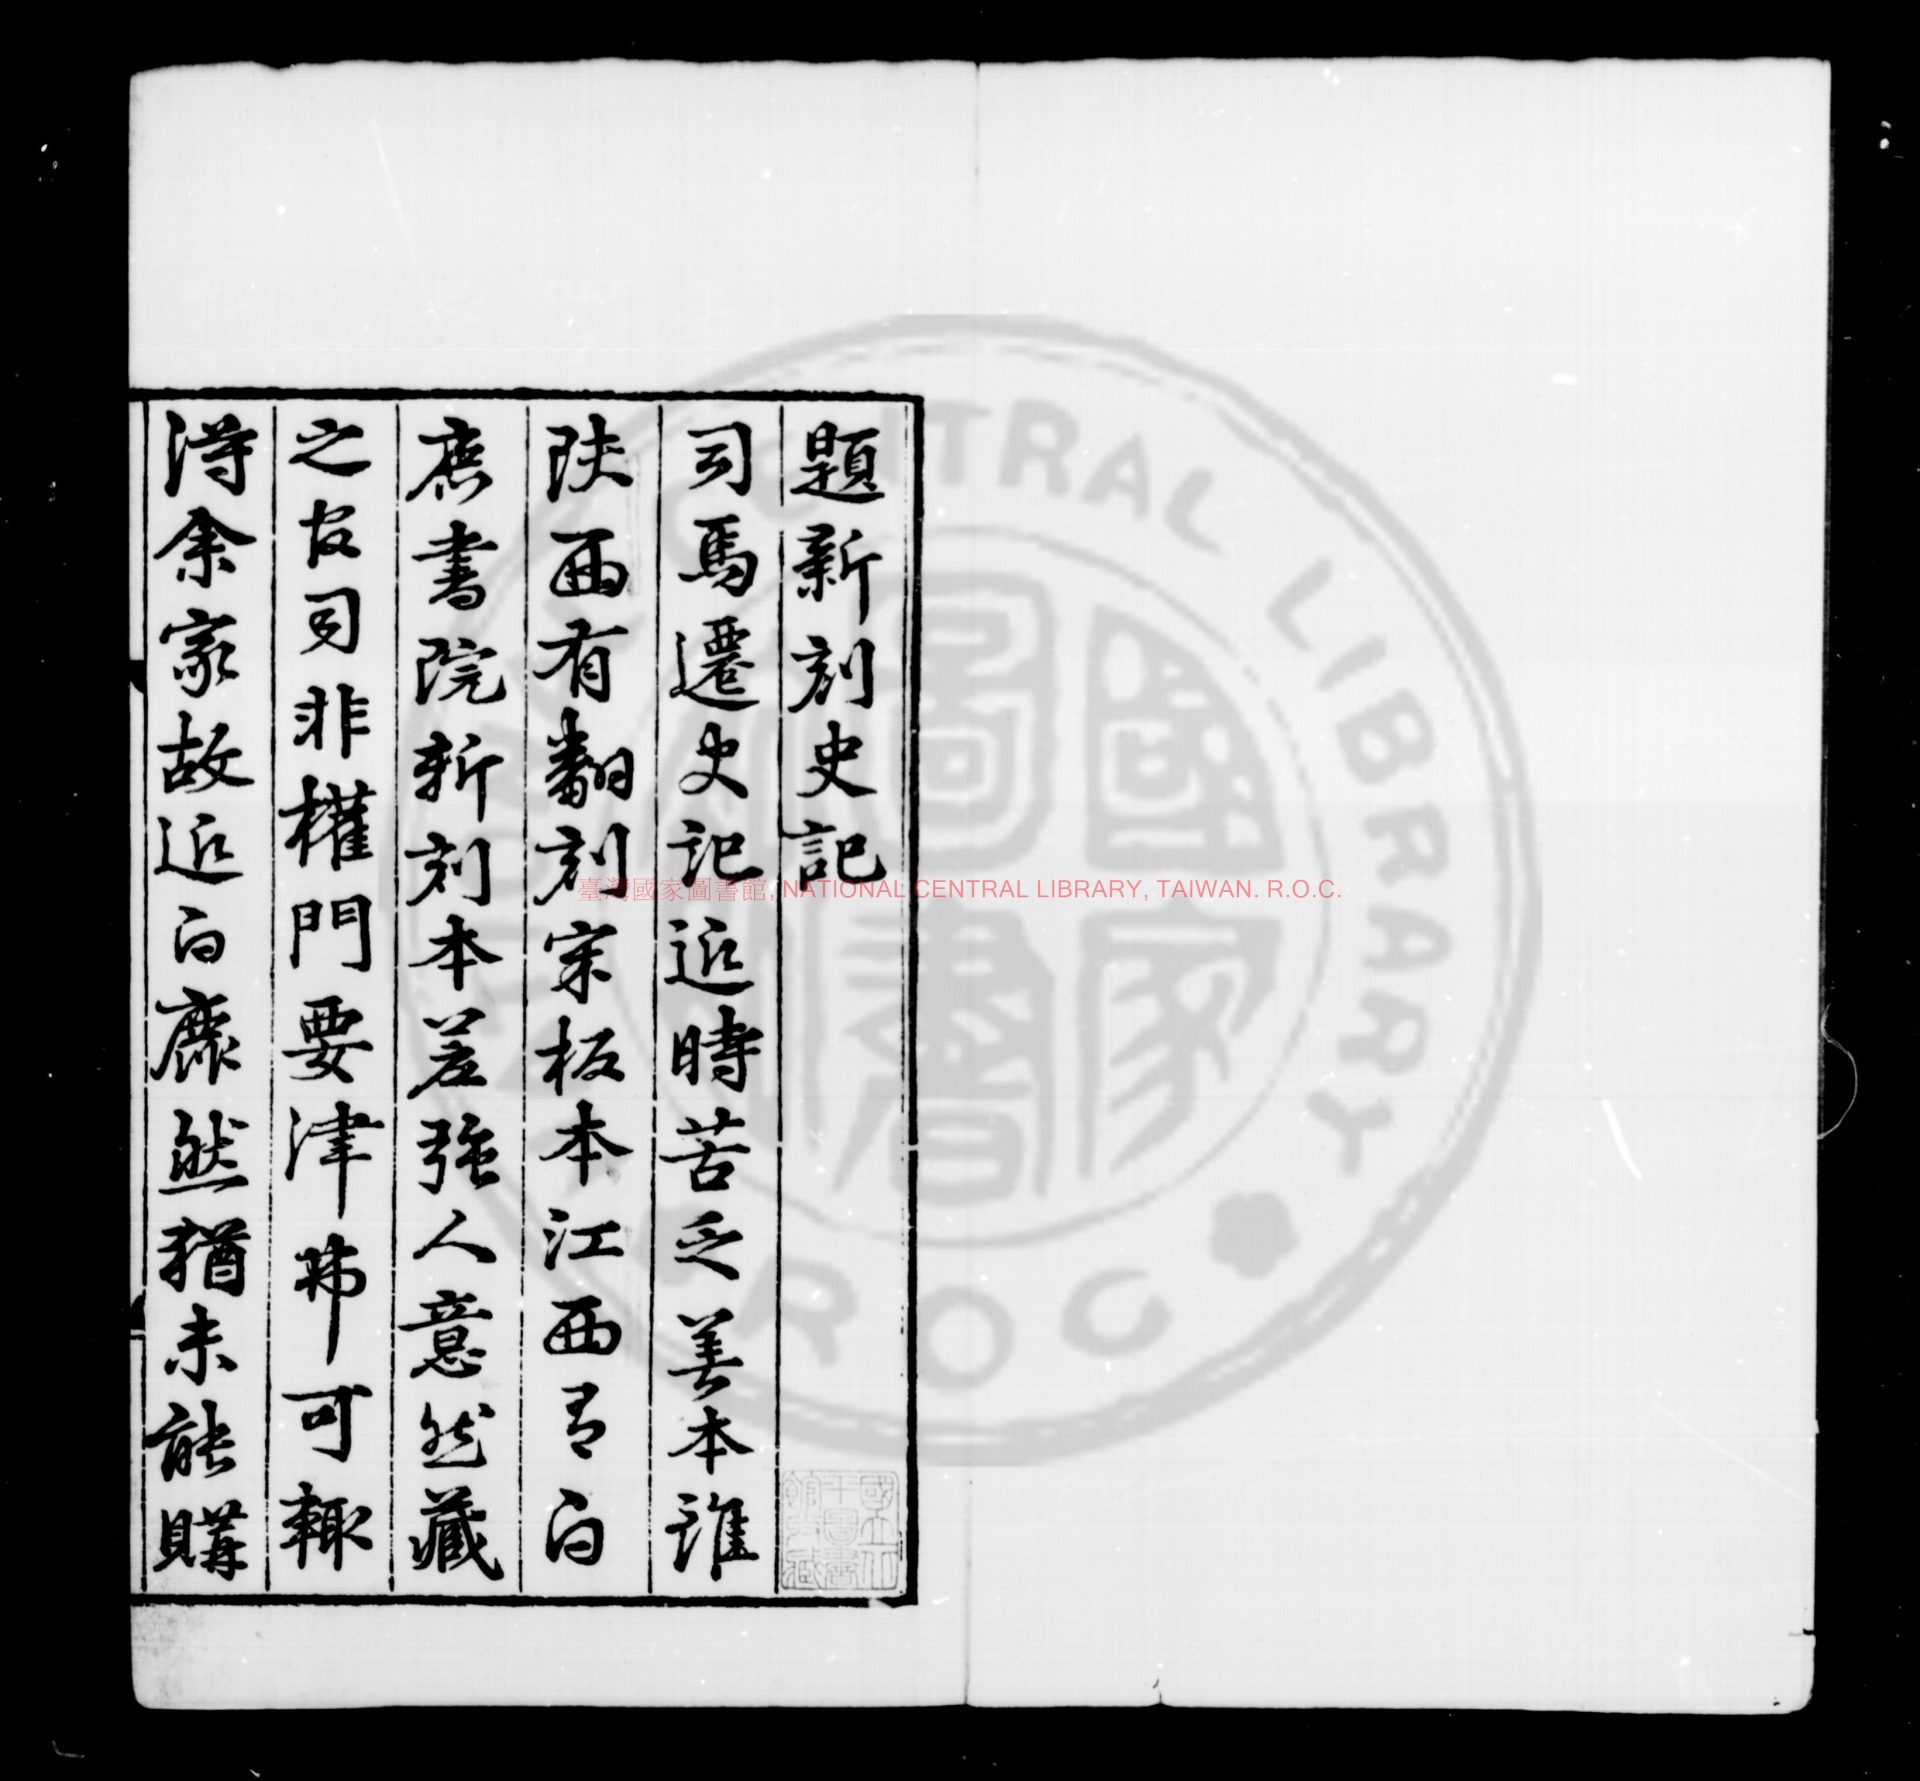 題新刻史記
司馬遷史記近時苦乏善本誰
陝西有翻刻宋板本江西有白
鹿書院新刻本差強人意然藏
之官司非權門要津弗可輒
得余家故近白鹿然猶未能購
臺灣國家圖書館, NATIONAL CENTRAL LIBRARY, TAIWAN. R.O.C.
國家圖書
CENTRAL LIBRARY
R.O.C